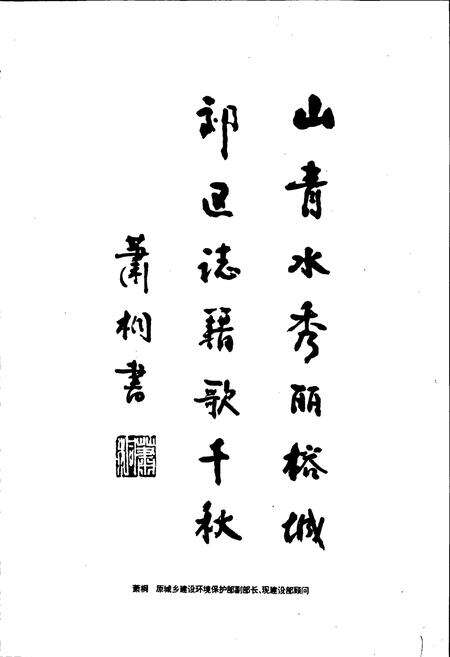 山青水秀丽榕城
郊区誌籍歌千秋
萧桐書
萧桐
萧桐 原城乡建设环境保护部副部长、现建设部顾问